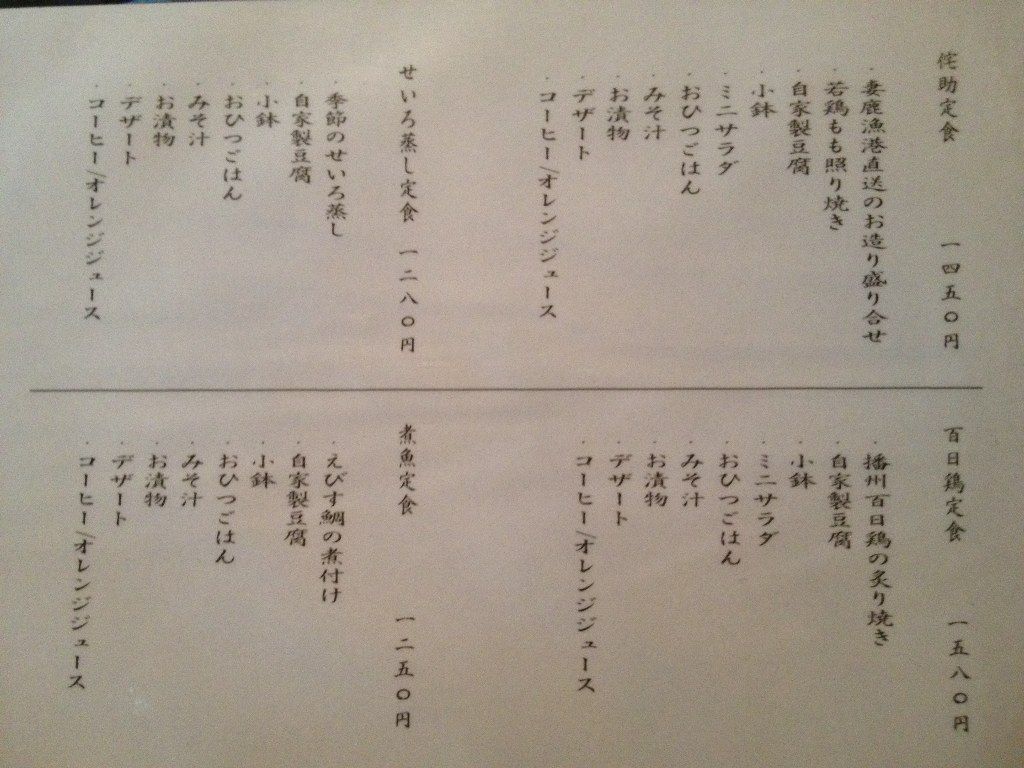 侘助定食 一四五〇円
・妻鹿漁港直送のお造り盛り合せ
・若鶏もも照り焼き
・自家製豆腐
・小鉢
・ミニサラダ
・おひつごはん
・みそ汁
・お漬物
・デザート
・コーヒー/オレンジジュース
せいろ蒸し定食 一二八〇円
・季節のせいろ蒸し
・自家製豆腐
・小鉢
・おひつごはん
・みそ汁
・お漬物
・デザート
・コーヒー/オレンジジュース
百日鶏定食 一五八〇円
・播州百日鶏の炙り焼き
・自家製豆腐
・小鉢
・ミニサラダ
・おひつごはん
・みそ汁
・お漬物
・デザート
・コーヒー/オレンジジュース
煮魚定食 一二五〇円
・えびす鯛の煮付け
・自家製豆腐
・小鉢
・おひつごはん
・みそ汁
・お漬物
・デザート
・コーヒー/オレンジジュース